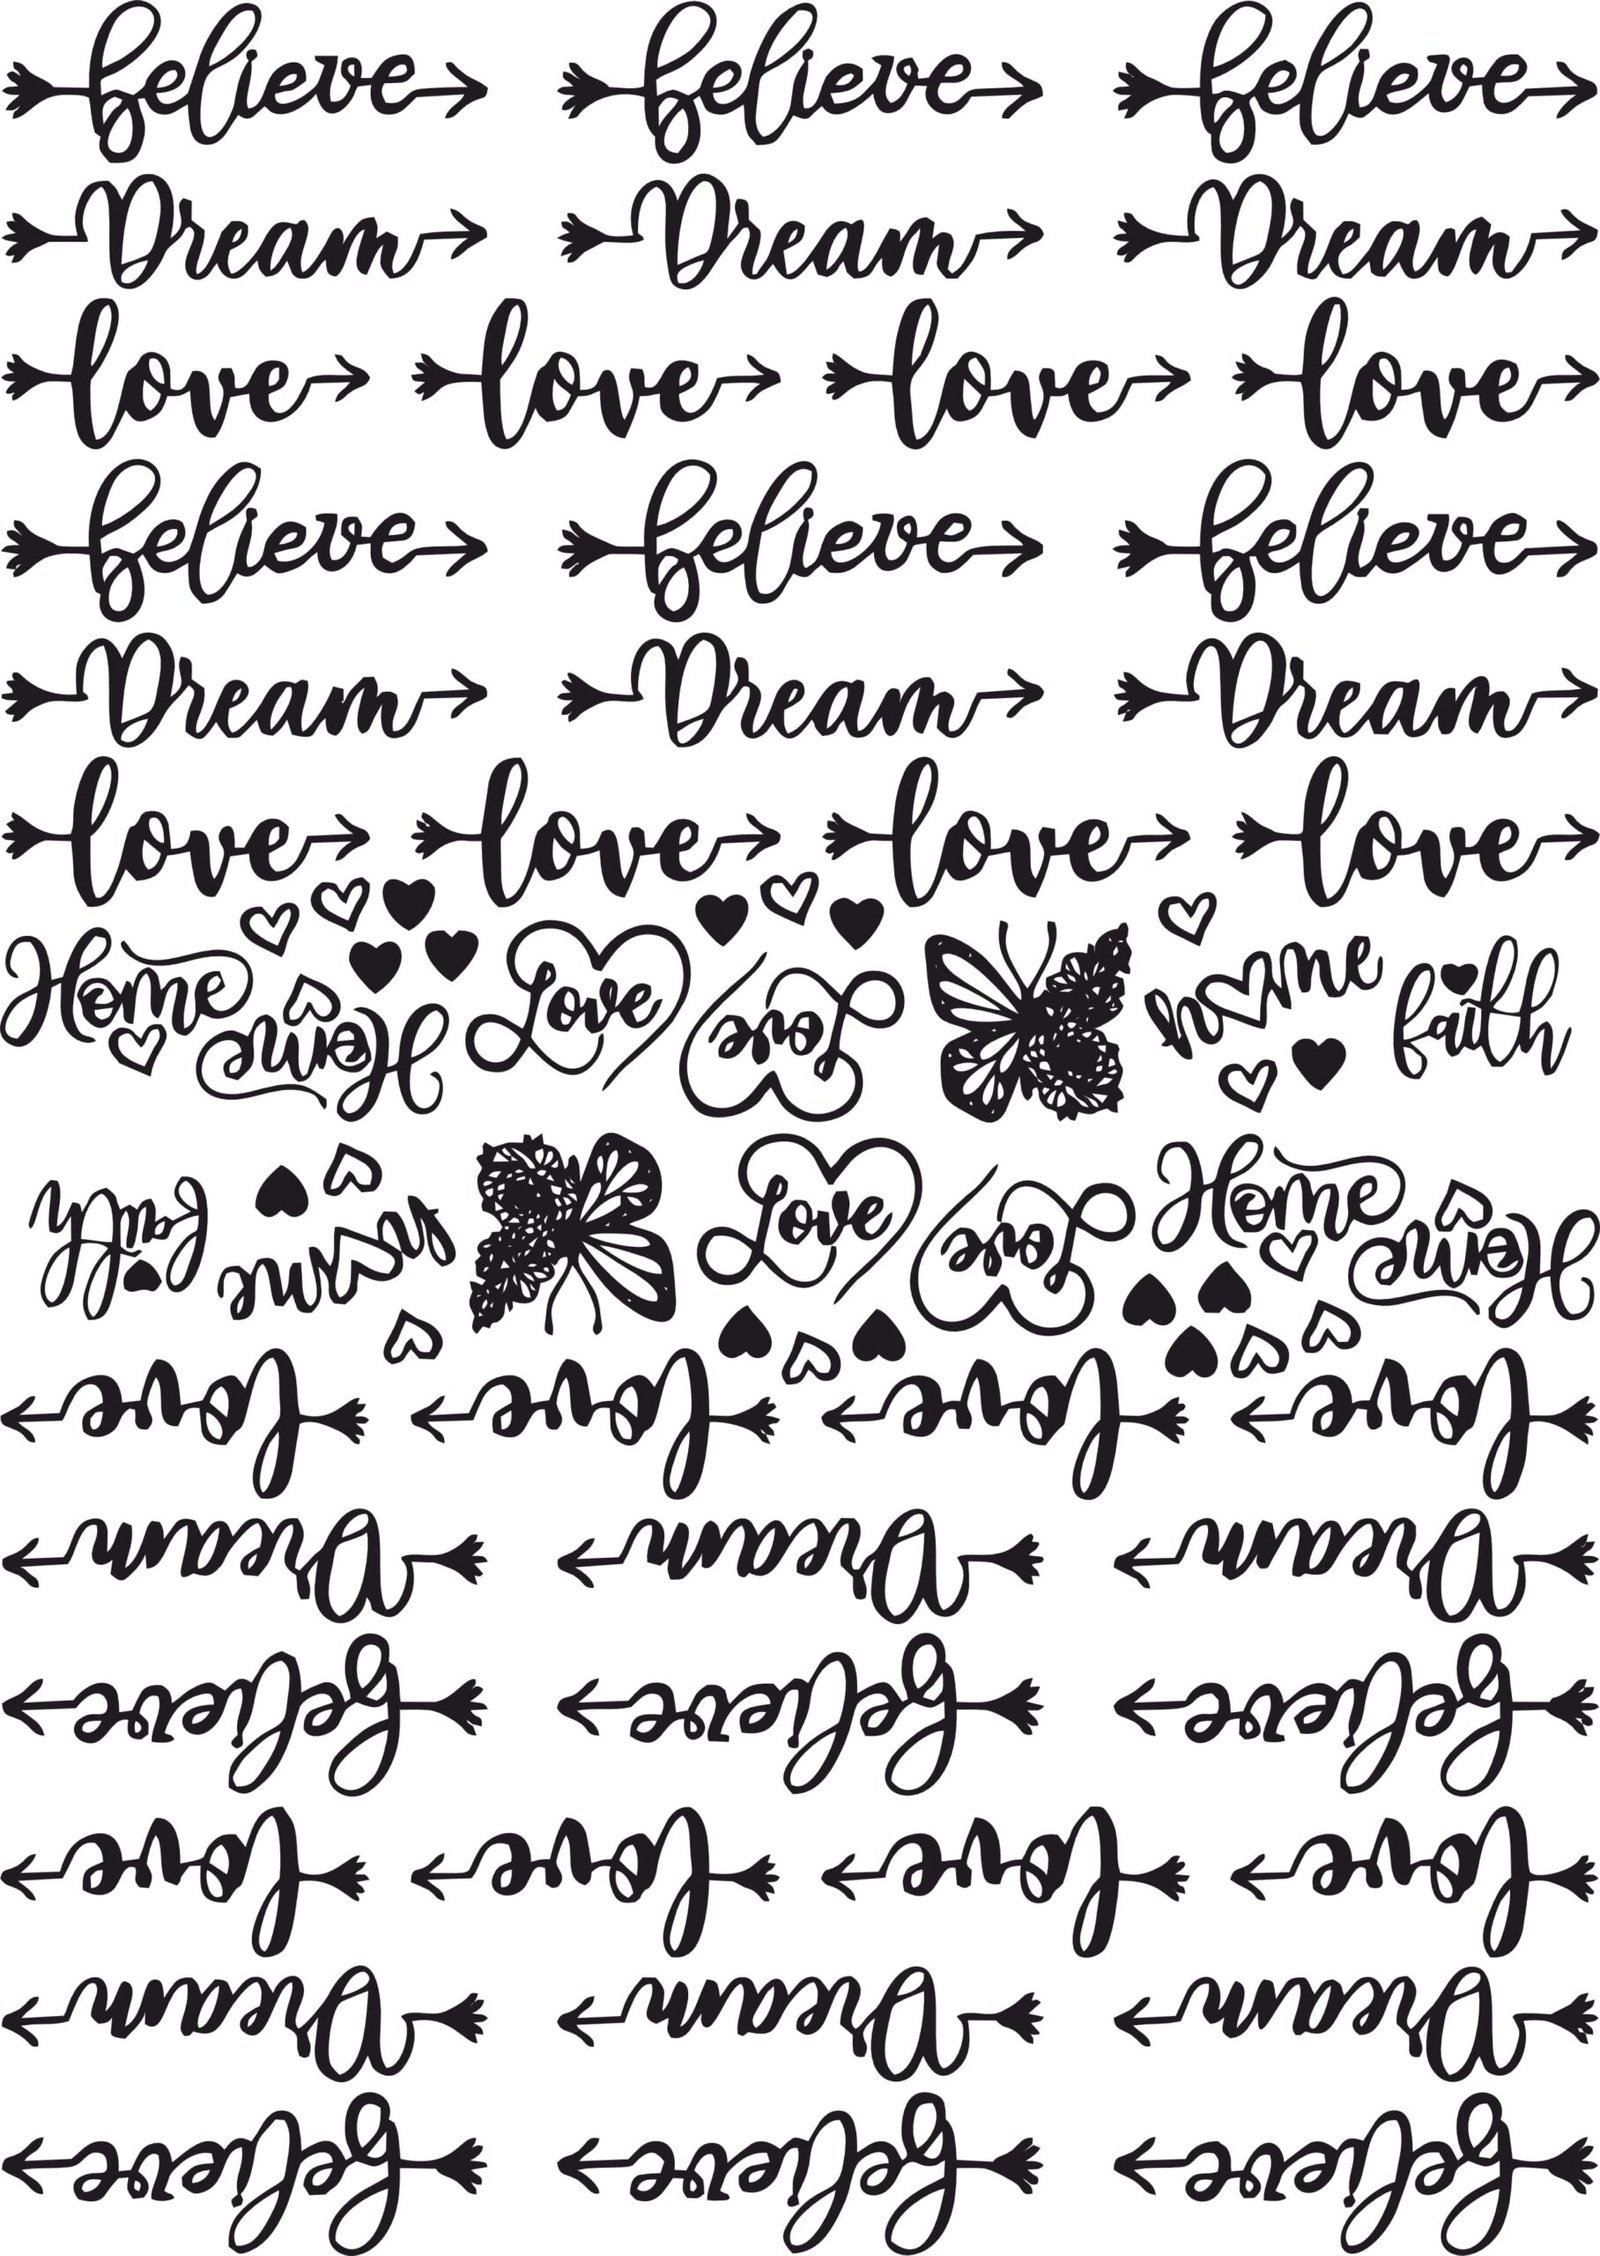 believe believe believe
Dream Dream Dream
love love love love
believe believe believe
Dream Dream Dream
love love love love
Home Home Love Love home faith
faith home Love Love Home Home
love love love love
Dream Dream Dream
believe believe believe
love love love love
Dream Dream Dream
believe believe believe